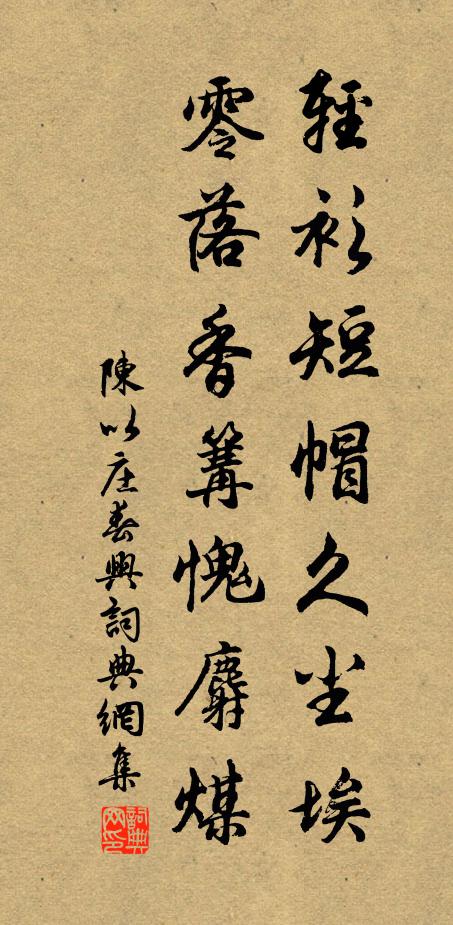 輕衫短帽久尘埃
零落香篝愧麝煤
陳以庄春興詞典網集
詞典网印